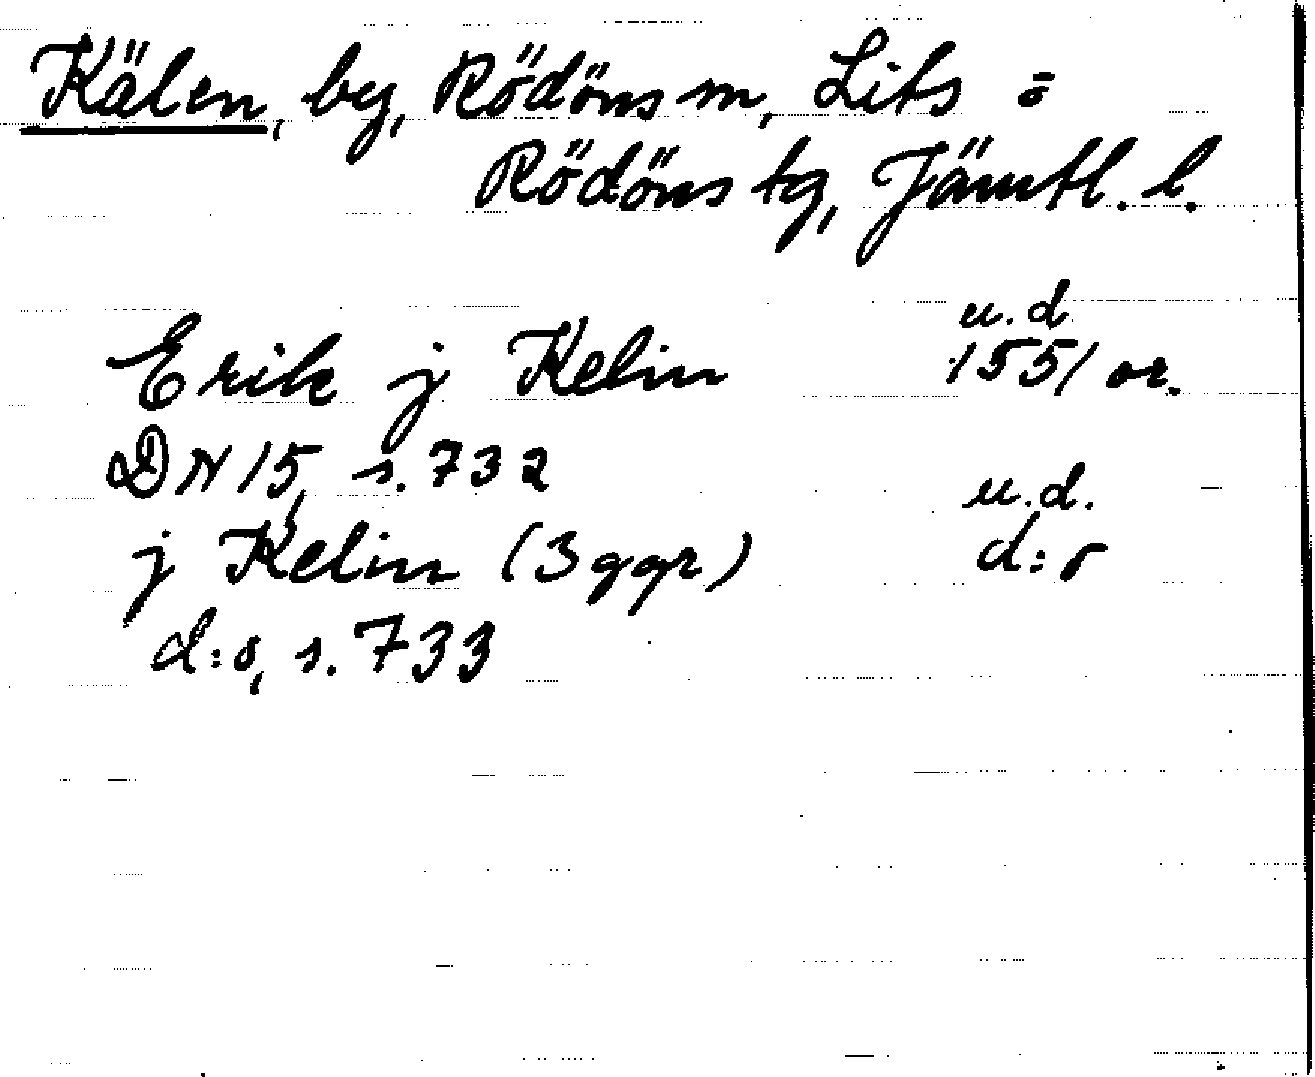 Kälen, by, Rödöns sn, Lits o
Rödöns tg, Jämtl. l.
u.d.
Erik j Kelin 1551 or.
DN 15, s. 732
u.d.
j Kelin (3 ggr) d:o
d:o, s. 733